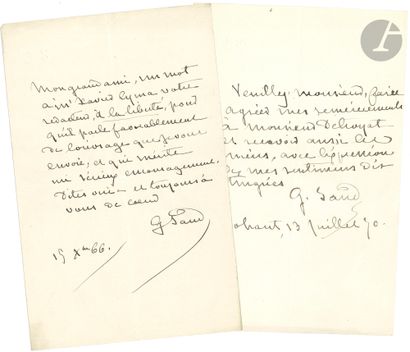 Mon grand ami, un mot
à Mr Xavier Eyma votre
rédacteur, à la liberté, pour
qu'il parle favorablement
de l'ouvrage que je vous
envoie, et qui mérite
un sérieux encouragement.
Dites oui — et toujours à
vous de cœur
G Sand
15 Xbre 66.
Veuillez monsieur, faire
agréer mes remerciements
à monsieur
et recevoir aussi les
miens, avec l'expression
de mes sentiments dis
tingués
G. Sand
ohant, 13 Juillet 70.